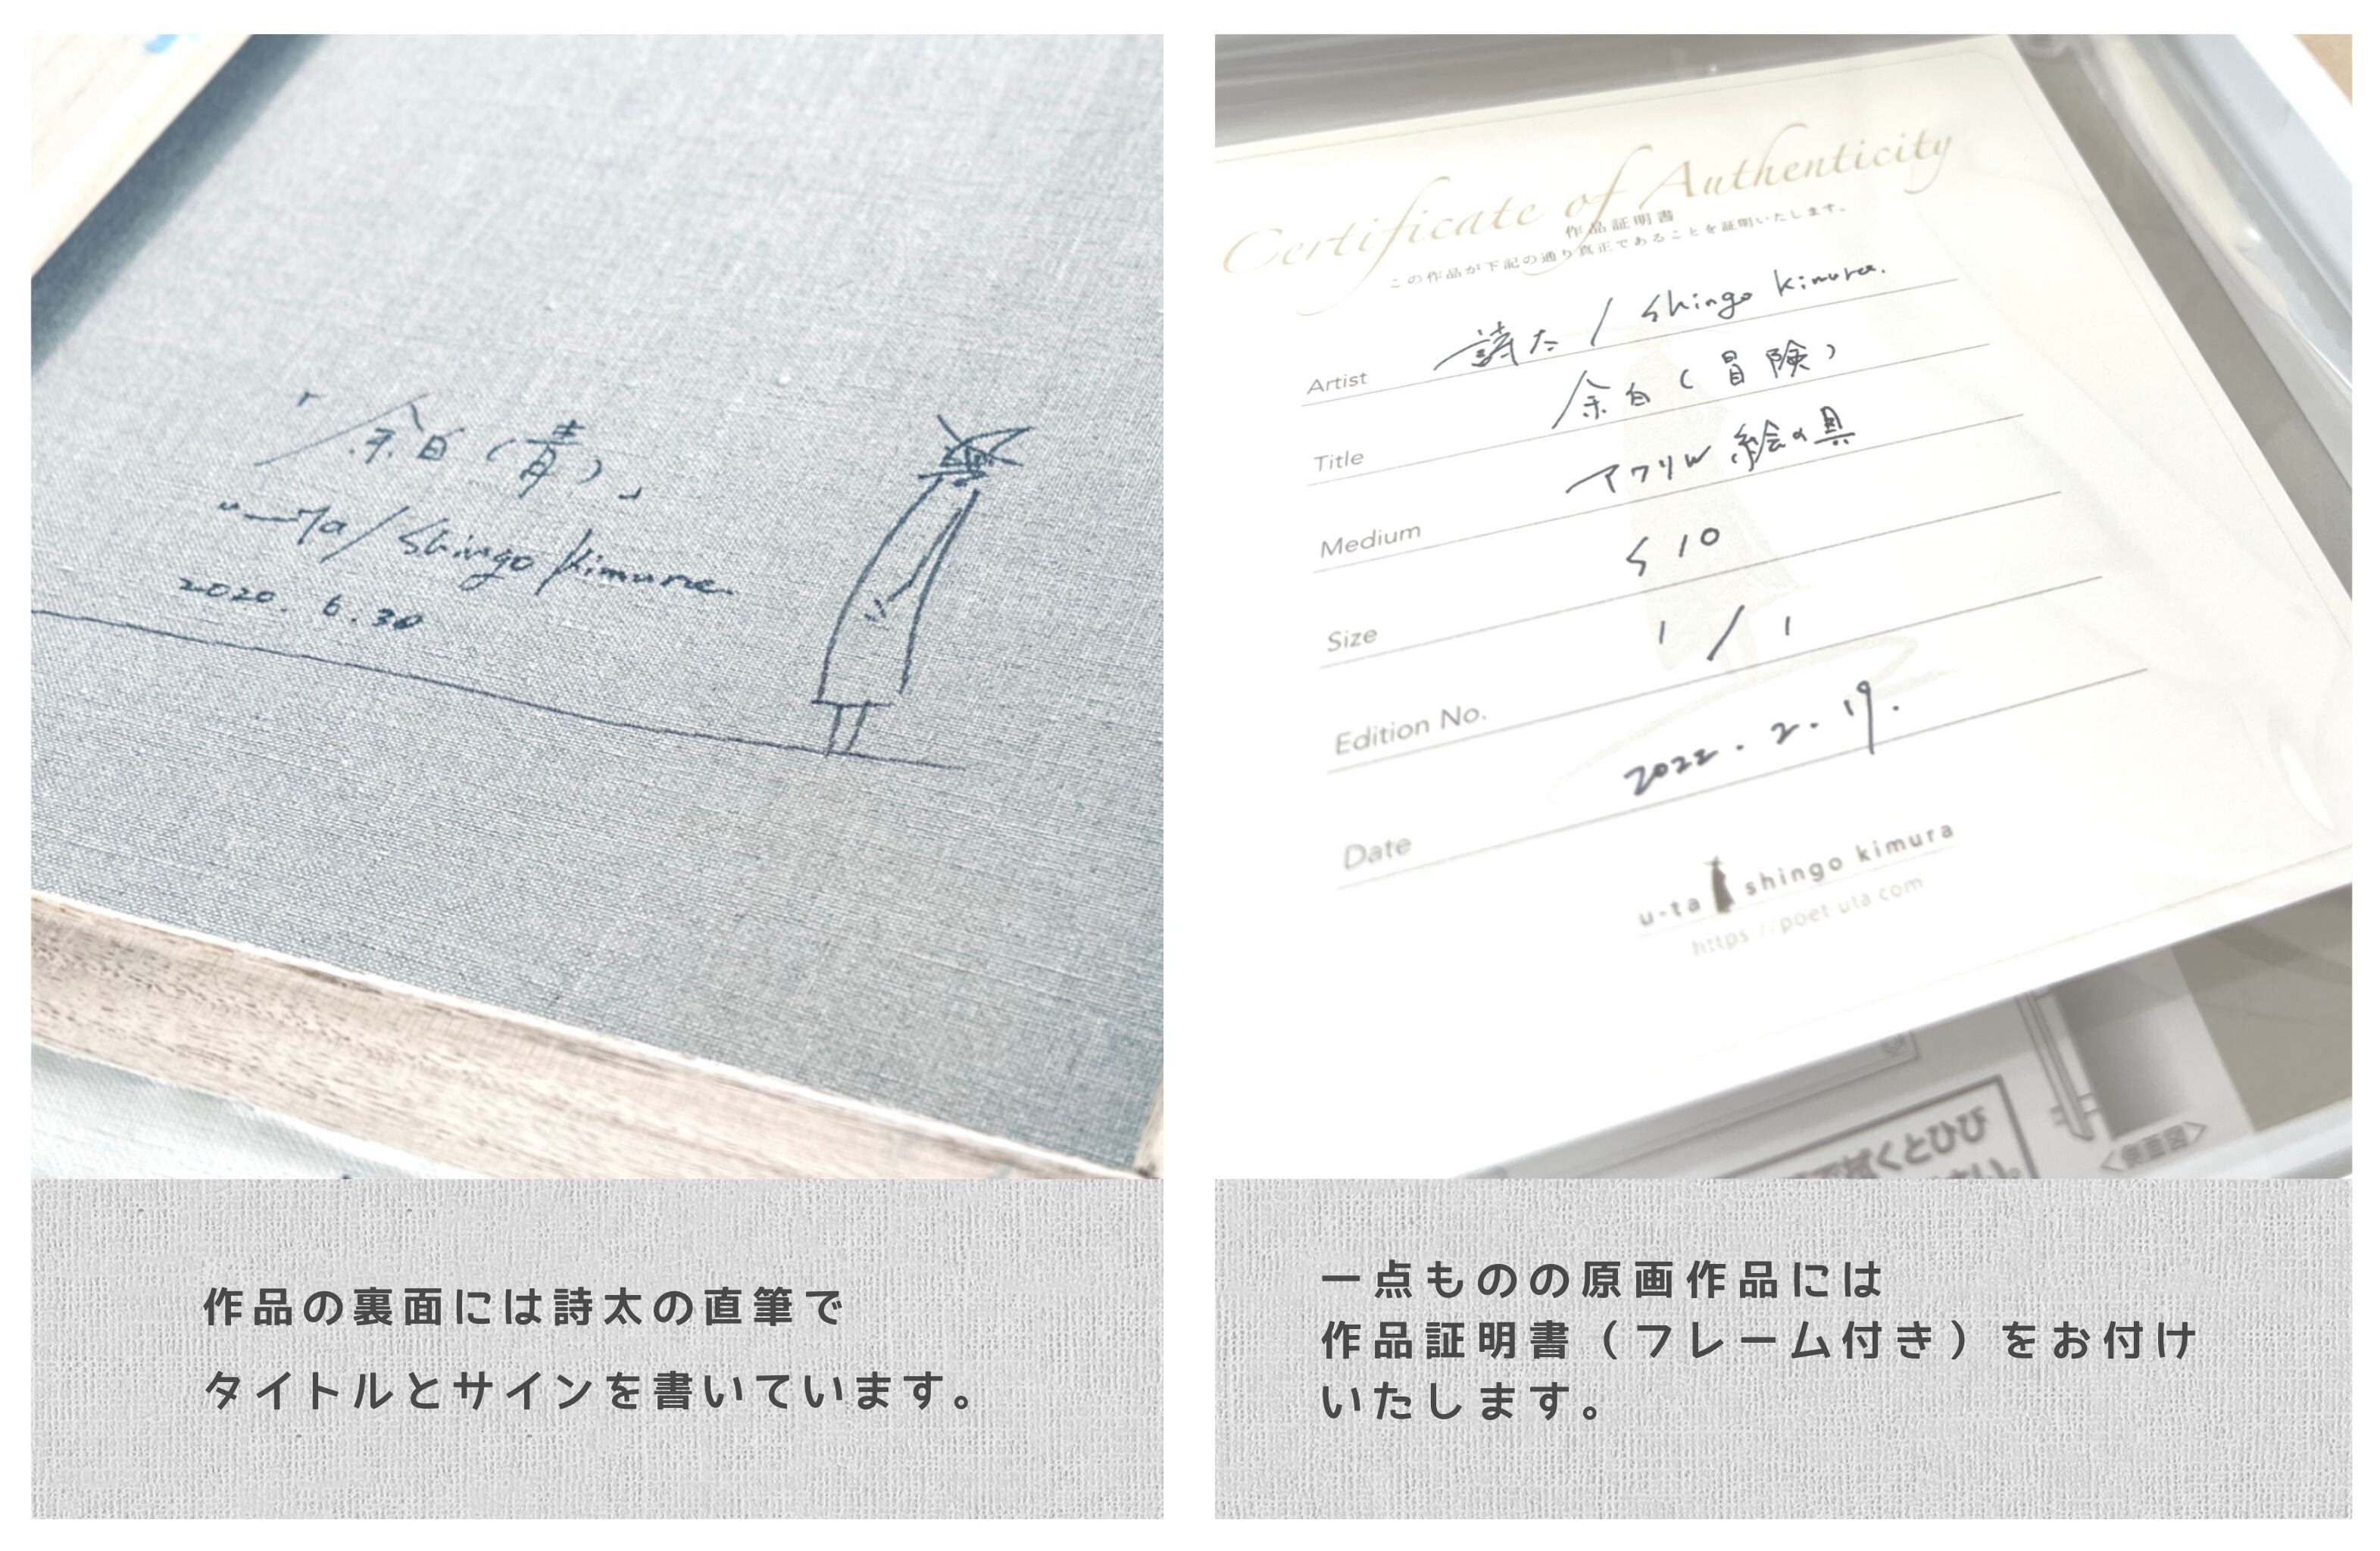 「余白(青)」
u-ta/Shingo Kimura
2020. 6.30
作品の裏面には詩太の直筆で
タイトルとサインを書いています。
Certificate of Authenticity
作品証明書
この作品が下記の通り真正であることを証明いたします。
Artist 詩太/Shingo Kimura.
Title 余白(冒険)
Medium アクリル絵の具
Size S10
Edition No. 1/1
Date 2022.2.19.
u-ta shingo kimura
https://poet-uta.com
拭くとひび
さい。
<側面図>
一点ものの原画作品には
作品証明書（フレーム付き）をお付け
いたします。